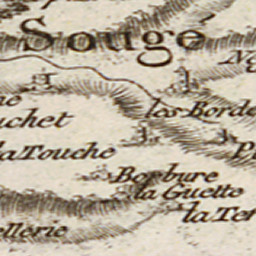 Sougé
les Borde
uchet
la Touche
Borbure
la Guette
la Ter
ellerie